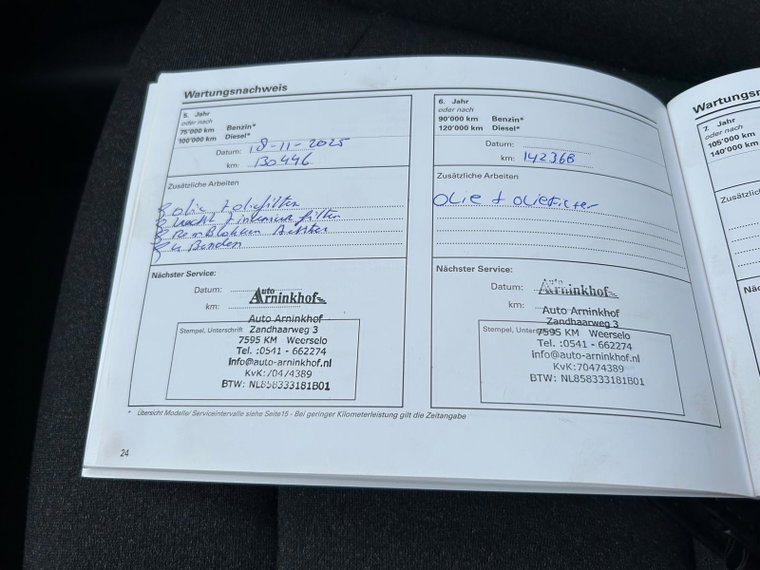 Wartungsnachweis
5. Jahr
oder nach
75'000 km Benzin*
100'000 km Diesel*
Datum: 18-11-2025
km: 130446
Zusätzliche Arbeiten
olie + oliefilter
lucht + interieur filter
Remblokken Achter
4 Banden
Nächster Service:
Datum:
km:
Auto
Arninkhof
Stempel, Unterschrift
Auto Arninkhof
Zandhaarweg 3
7595 KM Weerselo
Tel. :0541 - 662274
info@auto-arninkhof.nl
KvK:70474389
BTW: NL858333181B01
6. Jahr
oder nach
90'000 km Benzin*
120'000 km Diesel*
Datum:
km: 142368
Zusätzliche Arbeiten
olie + oliefilter
Nächster Service:
Datum:
km:
Auto
Arninkhof
Stempel, Unterschrift
Auto Arninkhof
Zandhaarweg 3
7595 KM Weerselo
Tel. :0541 - 662274
info@auto-arninkhof.nl
KvK:70474389
BTW: NL858333181B01
* Übersicht Modelle/ Serviceintervalle siehe Seite 15 - Bei geringer Kilometerleistung gilt die Zeitangabe
24
7. Jahr
oder nach
105'000 km
140'000 km